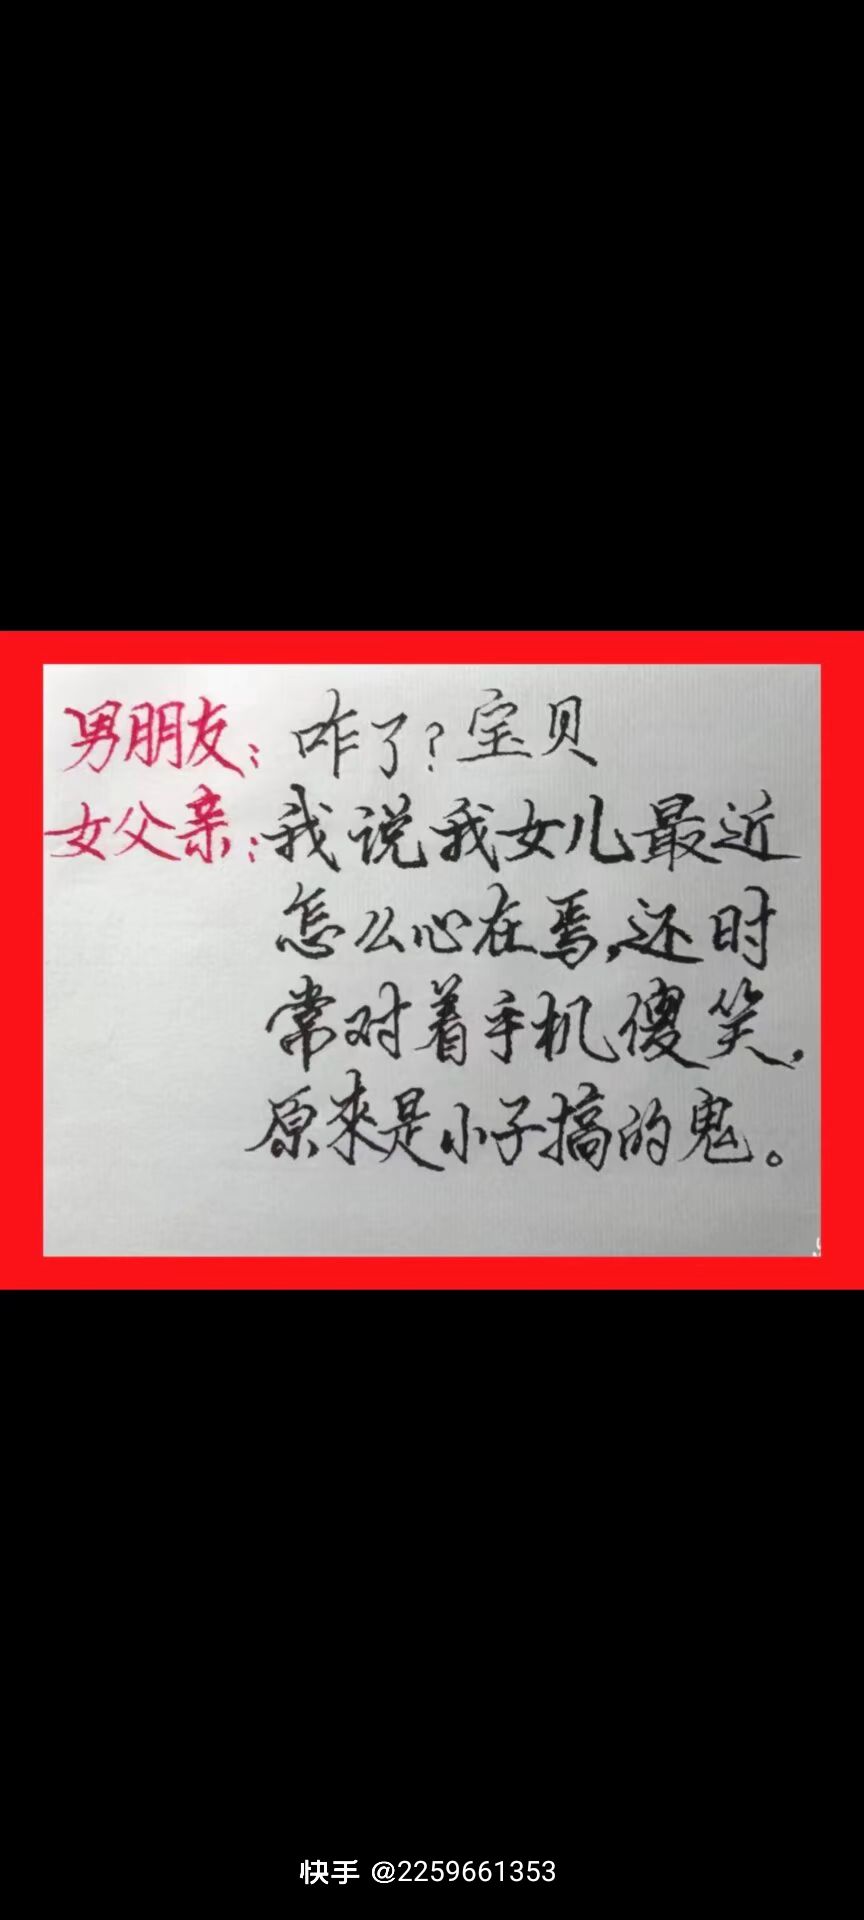 男朋友：咋了？宝贝
女父亲：我说我女儿最近
怎么心在焉，还时
常对着手机傻笑，
原來是小子搞的鬼。
快手 @2259661353